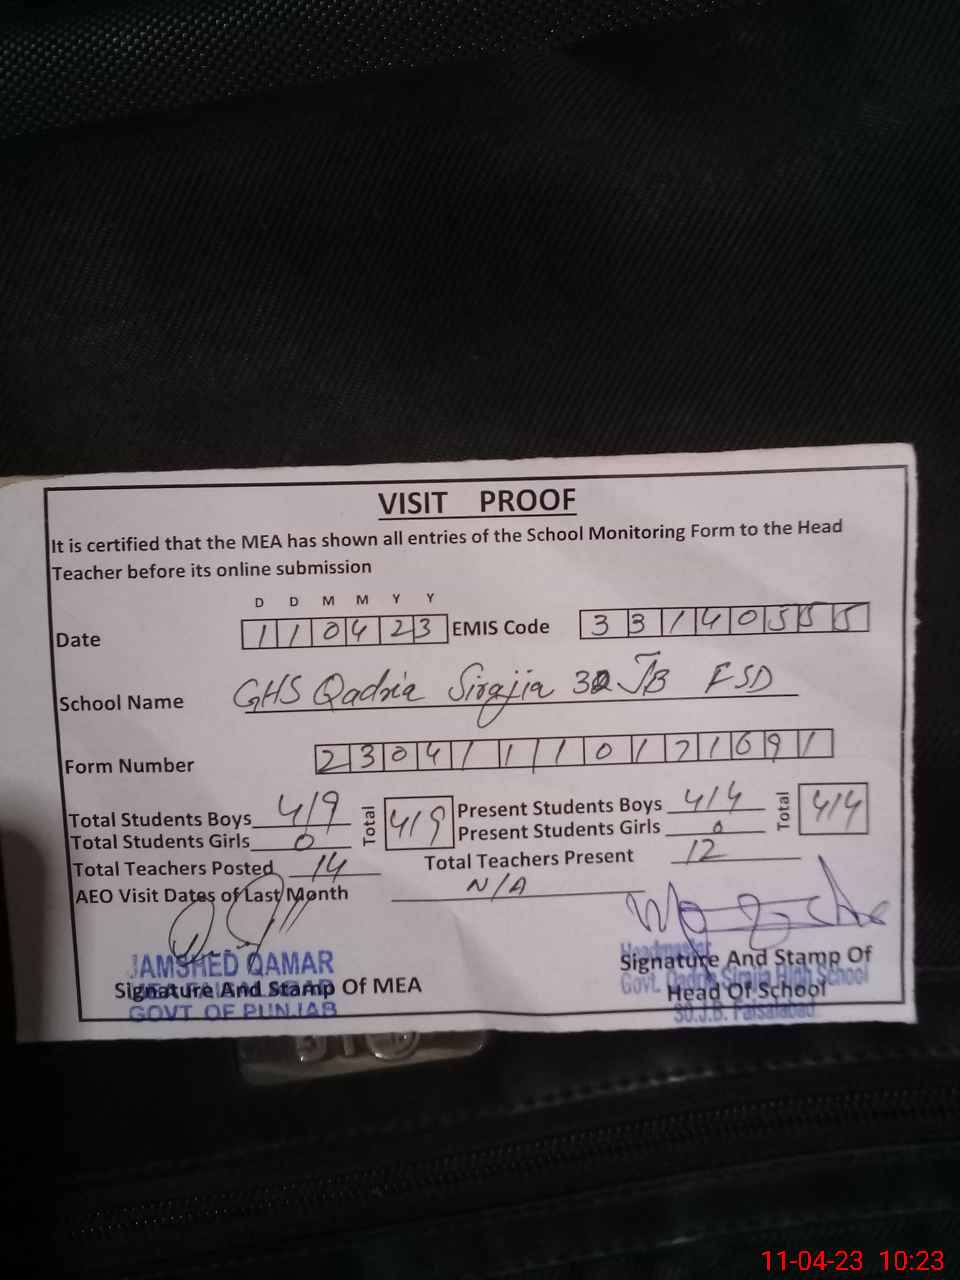 VISIT PROOF
It is certified that the MEA has shown all entries of the School Monitoring Form to the Head
Teacher before its online submission
D D M M Y Y
Date 110423 EMIS Code 33140555
School Name GHS Qadria Sirajia 30 JB FSD
Form Number 23041110171691
Total Students Boys 419 Total 419 Present Students Boys 414 Total 414
Total Students Girls 0 Present Students Girls 0
Total Teachers Posted 14 Total Teachers Present 12
AEO Visit Dates of Last Month N/A
JAMSHED QAMAR
Signature And Stamp Of MEA
GOVT OF PUNJAB
Headmaster
Signature And Stamp Of
Govt. Qadria Sirajia High School
Head Of School
30.J.B. Faisalabad
11-04-23 10:23